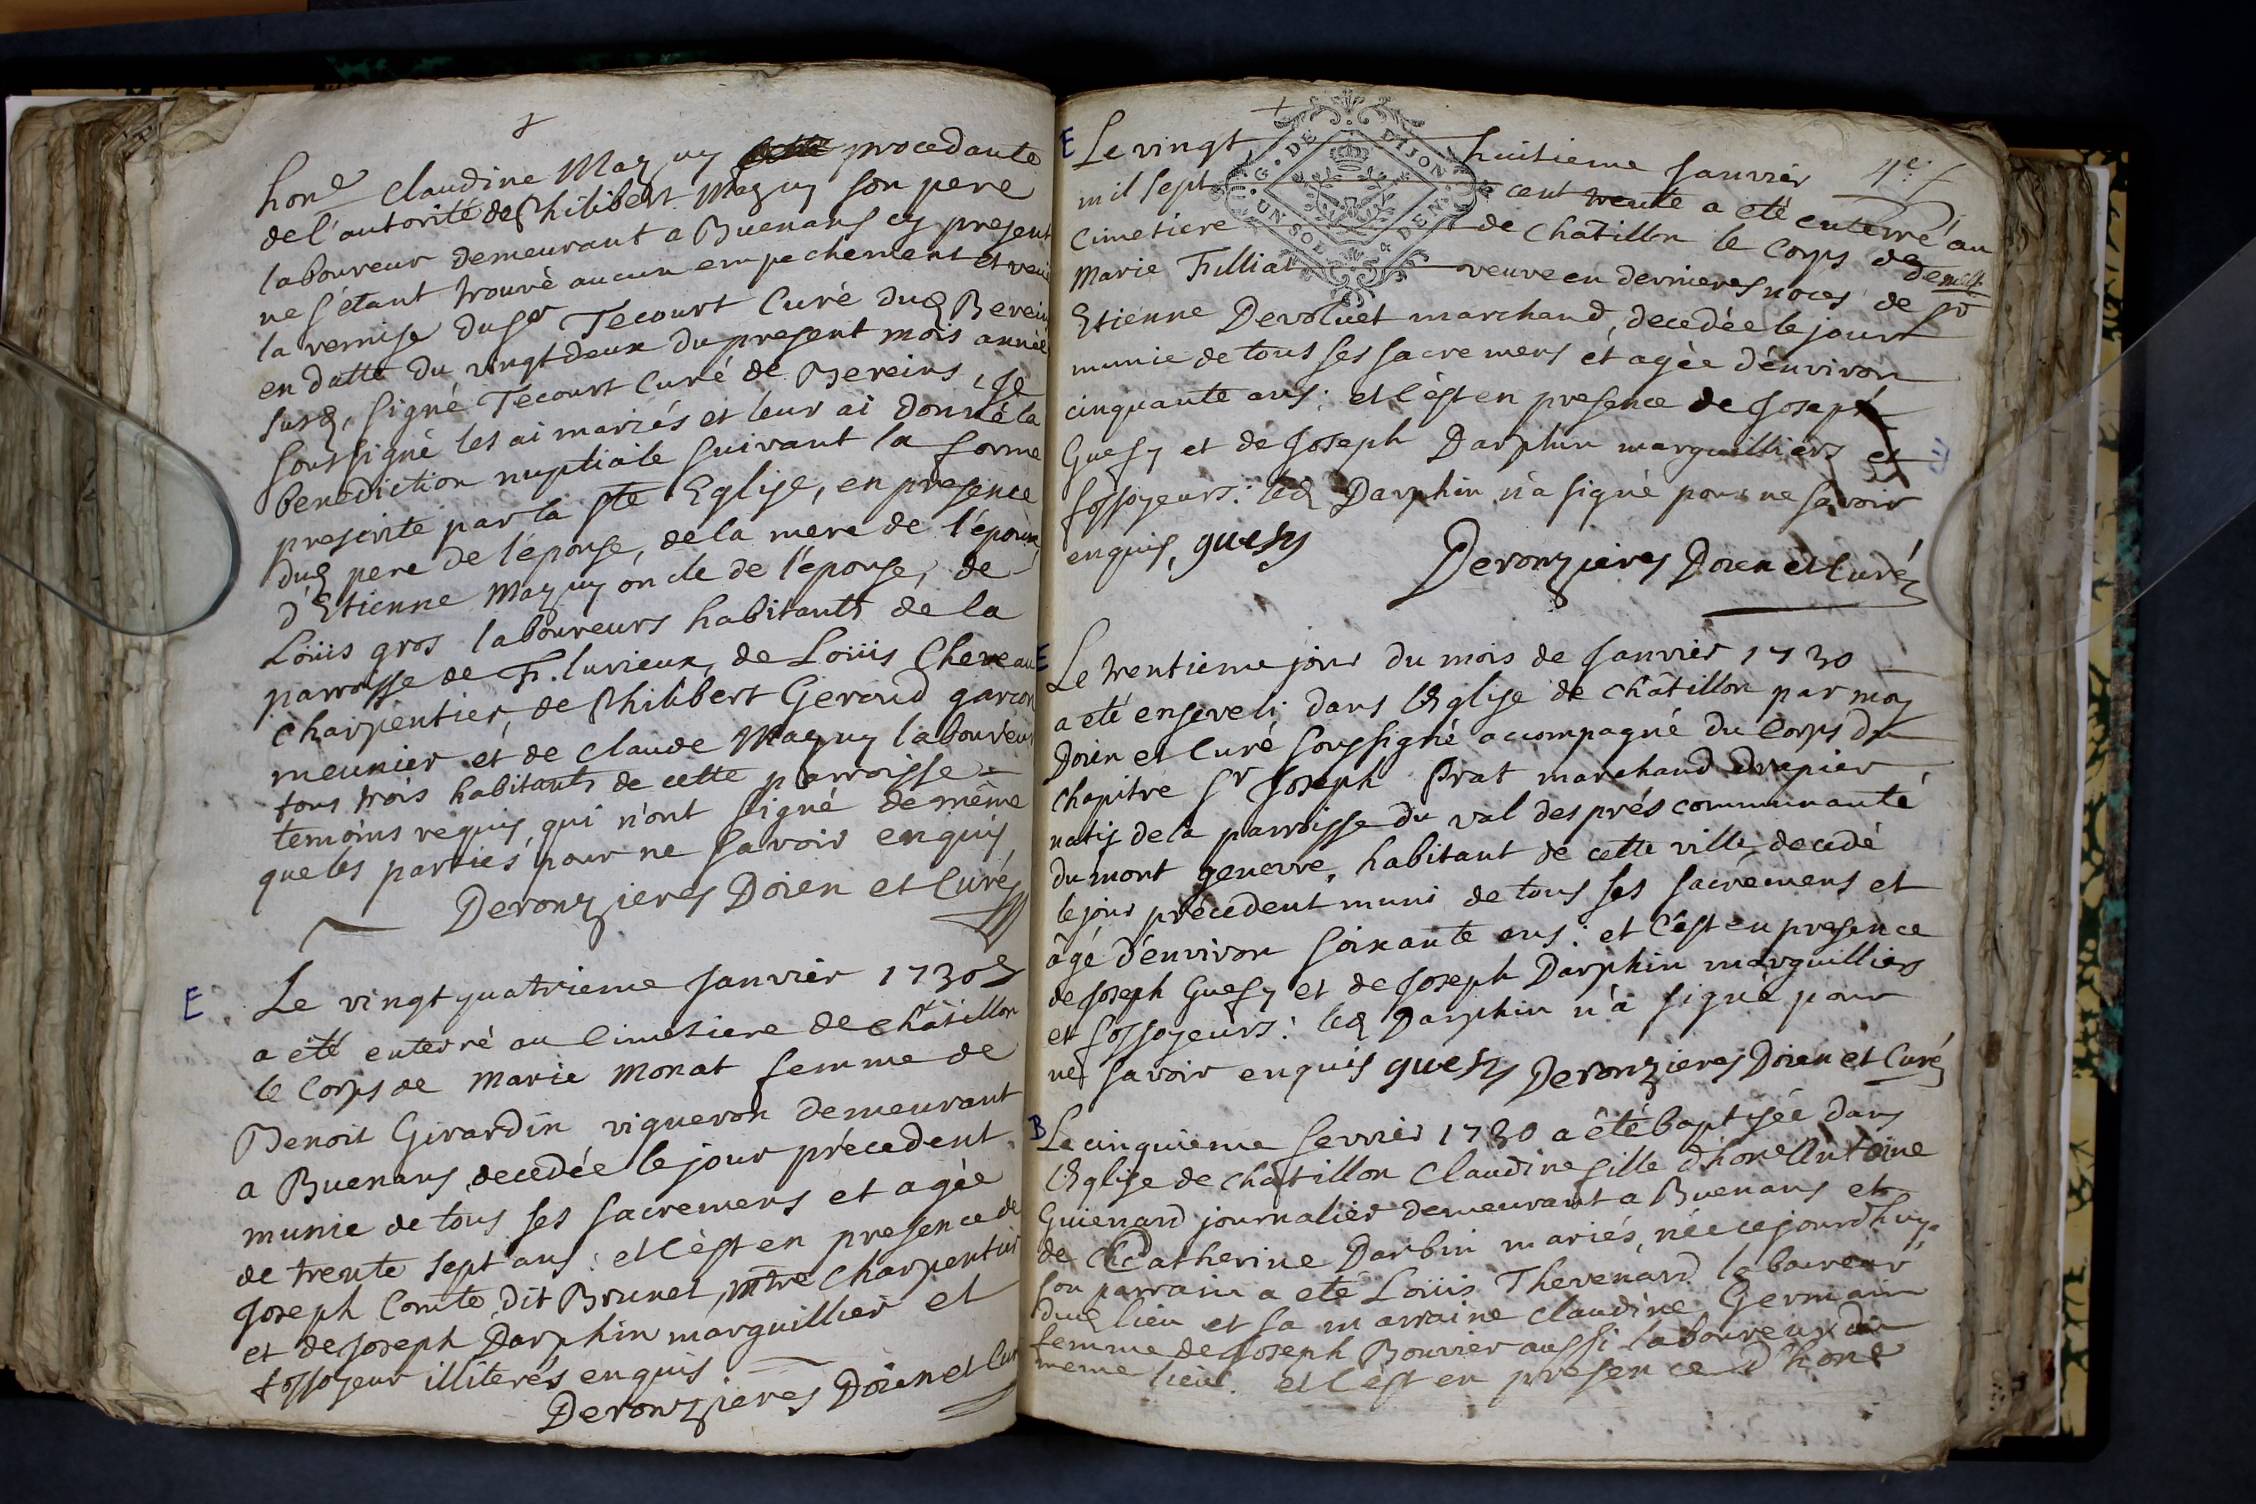 hon^e Claudine Mazuy procedante
de l'autorité de Philibert Mazuy son pere
laboureur demeurant a Buenans cy present
ne s'étant trouvé aucun empechement et veu
la remise du s^r Tecourt Curé dud Berein
en datte du vingt deux du present mois année
susd, signé Tecourt Curé de Bereins, Je
soussigné les ai mariés et leur ai donné la
benediction nuptiale suivant la forme
prescrite par la s^te Eglise, en presence
dud pere de l'épouse, de la mere de l'époux,
d'Etienne Mazuy oncle de l'épouse, de
Loüis gros laboureurs habitants de la
parroisse de F. lurieux, de Loüis Cheveau
charpentier, de Philibert Geroud garçon
meunier et de Claude Mazuy laboureur
tous trois habitants de cette parroisse
temoins requis, qui n'ont signé de même
que les parties pour ne savoir enquis
Deronzieres Doien et Curé
E
Le vingt quatrieme Janvier 1730
a eté enterré au Cimetiere de châtillon
le Corps de Marie Monat femme de
Benoit Girardin vigneron demeurant
a Buenans, decedée le jour précedent
munie de tous ses sacremens et agée
de trente sept ans : et c'est en presence de
Joseph Comte dit Brunet, m^tre Charpentier
et de Joseph Darphin marguillier et
fossoyeur illiterés enquis
Deronzieres Doien et Cur
E Le vingt huitieme Janvier
G. DE DIJON UN SOL DEN.
mil sept cent trente a eté enterré au
Cimetiere de Chatillon le Corps de dem^elle
Marie Filliat veuve en dernieres noces de s^r
Etienne Devoluet marchand, decedée le jour
munie de tous ses sacremens et agée d'environ
cinquante ans : et c'est en presence de Joseph
Guesy et de Joseph Darphin marguilliers et
fossoyeurs : led Darphin n'a signé pour ne savoir
enquis, guesy
Deronzieres Doien et Curé
E Le trentieme jour du mois de Janvier 1730
a eté enseveli dans l'Eglise de châtillon par moy
Doien et Curé soussigné accompagné du Corps du
chapitre s^r Joseph Prat marchand drapier
natif de la parroisse du val des prés communauté
du mont genevre, habitant de cette ville, decedé
le jour précedent muni de tous ses sacremens et
âgé d'environ soixante ans : et c'est en presence
de Joseph Guesy et de Joseph Darphin marguilliers
et fossoyeurs : led Darphin n'a signé pour
ne savoir enquis guesy Deronzieres Doien et Curé
B Le cinquieme fevrier 1730 a été baptisée dans
l'Eglise de chatillon Claudine fille d'hon^e Antoine
Guienard journalier demeurant a Buenans et
de Catherine Darbin mariés, née ce jourd'huy.
son parrain a eté Loüis Thevenard laboureur
dud lieu et sa marraine Claudine Germain
femme de Joseph Bouvier aussi laboureur du
meme lieu. et c'est en presence d'hon^e